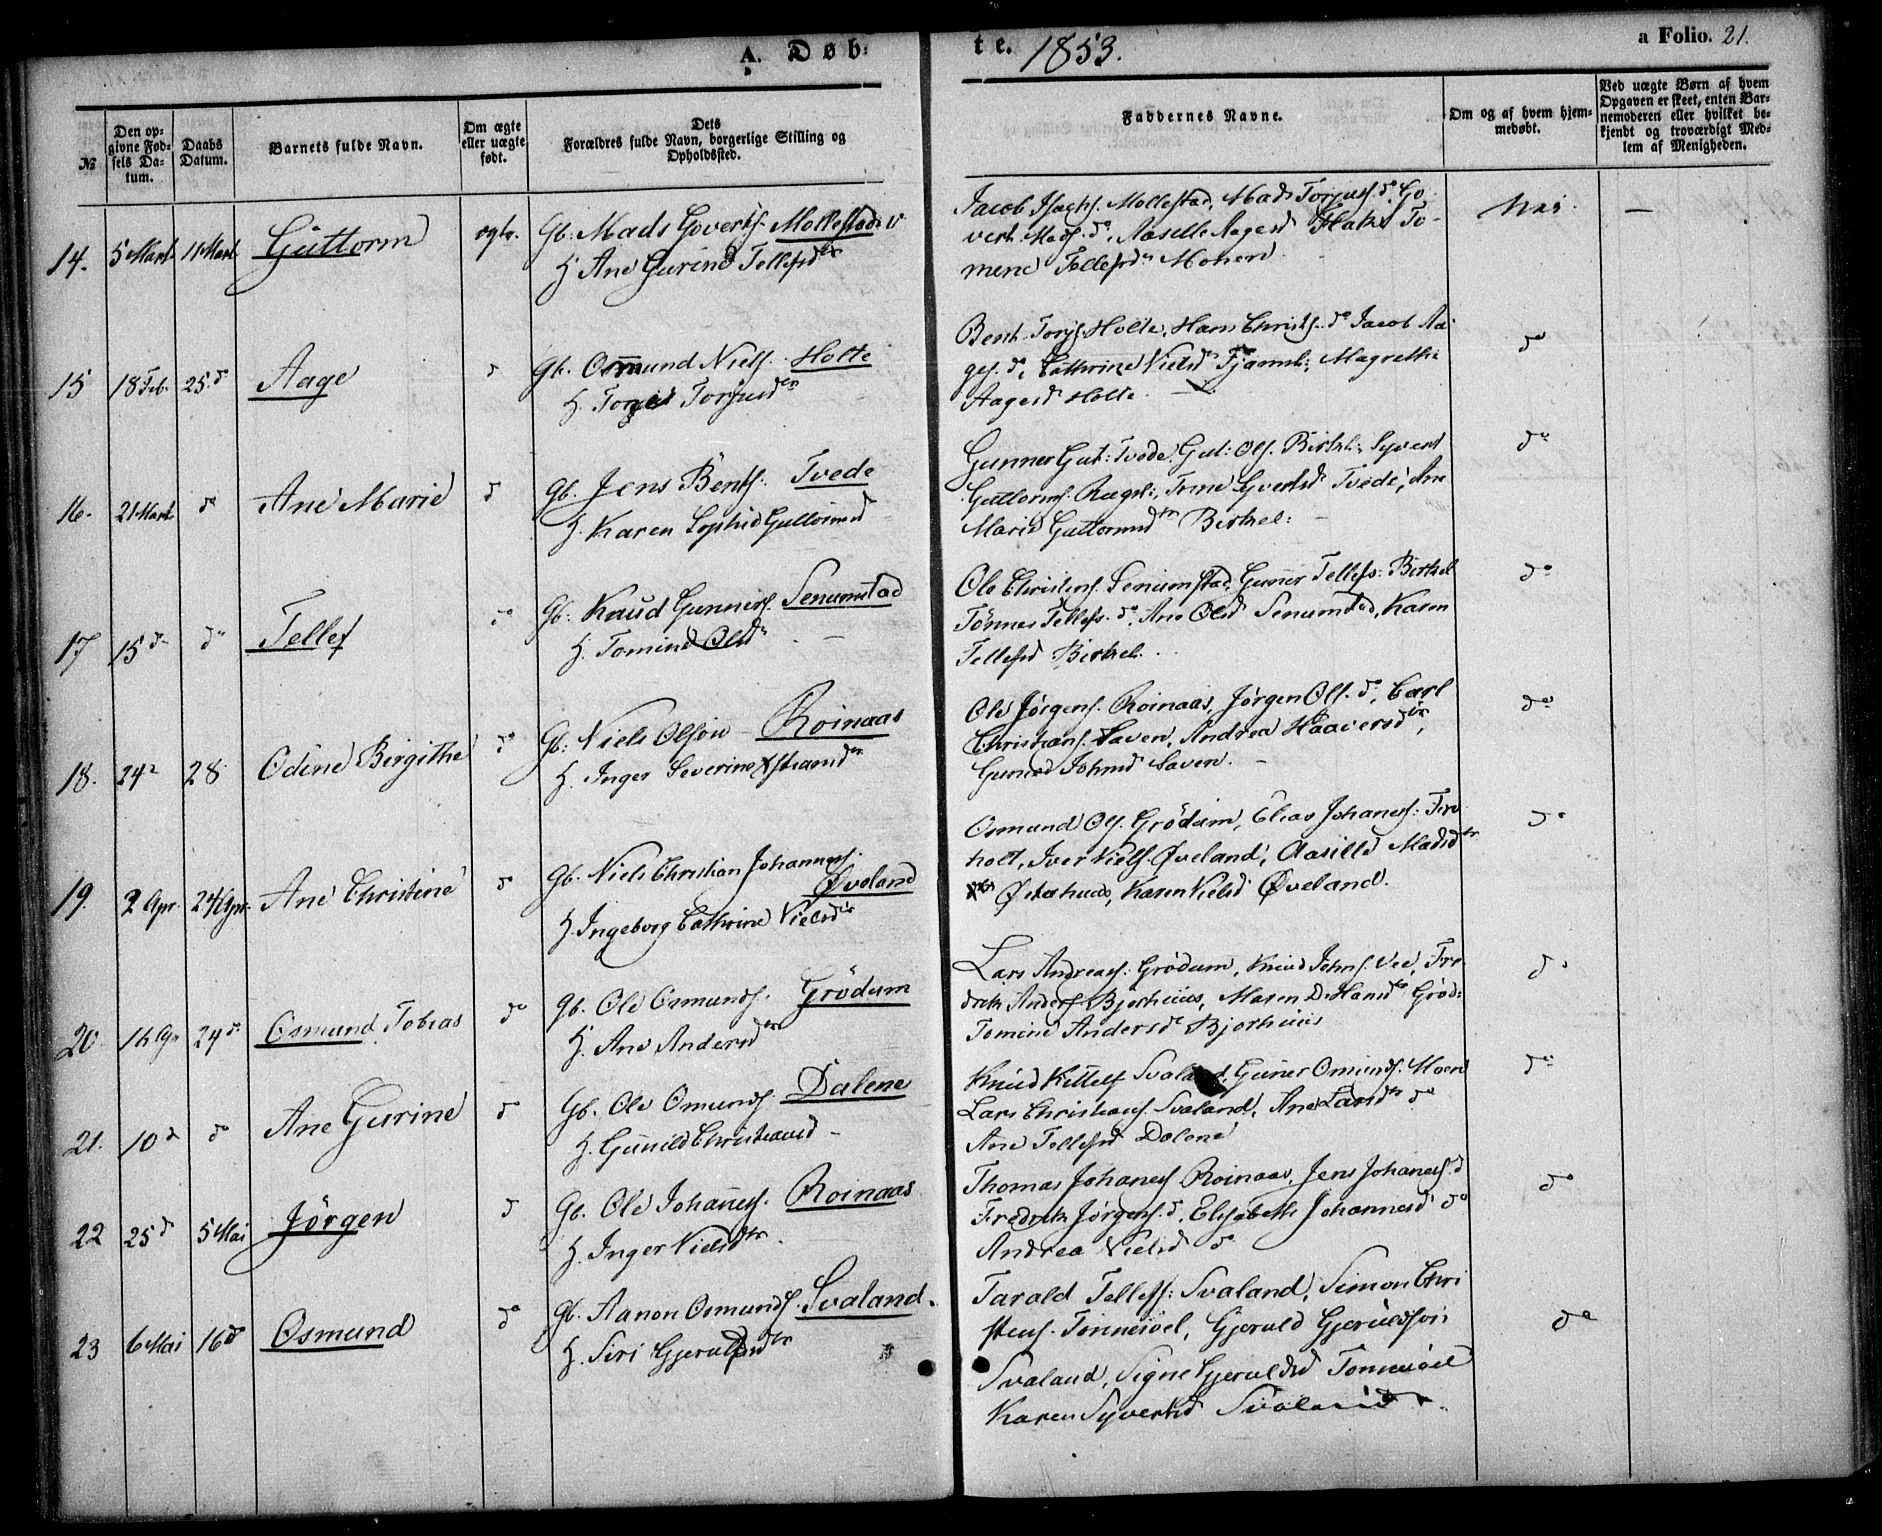 A. Døb: te. 1853. a Folio. 21.
№
Den op-
givne Fød-
sels Da-
tum.
Daabs
Datum.
Barnets fulde Navn.
Om ægte
eller uægte
født.
Dets
Forældres fulde Navn, borgerlige Stilling og
Opholdssted.
Faddernes Navne.
Om og af hvem hjem-
medøbt.
Ved uægte Børn af hvem
Opgaven er skeet, enten Bar-
nemoderen eller hvilket be-
kjendt og troværdigt Med-
lem af Menigheden.
14. 5 Mart 11 Mart Guttorm ægte. Gb. Mads Govertss. Mollestad
H Ane Gurine Tellefsdtr
Jacob Isachs. Mollestad, Mads Torjuss. do, Go-
vert Mads. do, Aaselle Aagesd Flaka To-
mene Tellefsd Monen.
Nei. —
15 18 Feb. 25 d Aage d Gb. Osmund Niels. Holte
H. Torjusdtr
Bent Torjs Holte, Hans Christs. do Jacob Aa-
ges. d, Cathrine Nielsd Tjaaml: Magrethe
Aagesd Holte.
do
16. 21 Mart do Ane Marie d Gb. Jens Bents. Tvede
H. Karen Sophie Guttormsd
Gunner Gut: Tvede, Gut: Ols. Birkel: Syvert
Guttorms. Tone Syvertsd Tvede, Ane
Marie Guttormsdtr Birkel: —
do
17 15 d do Tellef do Gb. Knud Gunners. Senumstad
H. Tomine Olsd —
Ole Christens. Senumstad, Gunner Tellefs: Birkel
Tönnes Tellefs. do, Ane Olsd Senumstad, Karen
Tellefsd Birkel.
do
18. 24 28 Odine Birgithe do Gb: Niels Olson — Roinaas
H. Inger Severine
Ole Jörgens. Roinaas, Jörgen Ols. do, Carl
Christians. Saven, Andrea Haaversdtr,
Johnsd Saven. —
do
19. 2 Apr. 24 Apr. Ane Christine d Gb. Niels Christian Johanness.
Øveland
H. Ingeborg Cathrine Nielsdtr
Osmund Ols. Grödum, Elias Johaness: Tre-
holt, Iver Niels. Øveland, Aasille Madsdtr
Østerhuus, Karen Nielsd Øveland.
do
20. 16 Ap 24 d. Osmund Tobias do Gb. Ole Osmunds. Grödum
H. Ane Andersdtr
Lars Andreass: Grödum, Knud Johns. Vee, Fre-
drik Anders. Bjorhuus, Maren D. Hansdtr Gröd:
Tomine Andersd Bjorhuus
do
21. 10 d do Ane Gurine d Gb. Ole Omunds. Dalene
H. Gunild Christiansd —
Knud Kittels Svaland, Guner Omunds. Moen
Lars Christians. Svaland, Ane Larsdtr do
Ane Tellefsd Dolene
do
22 25 d 5 Mai Jörgen d Gb. Ole Johaness. Roinaas
H. Inger Nielsdtr.
Thomas Johaness Roinaas, Jens Johaness. d
Fredrik Jörgens. d, Elisabeth Johannesd do
Andrea Nielsd do
do
23 6 Mai 16 d Osmund do Gb. Aanon Osmunds. Svaland.
H. Siri Gjeruldsdtr
Tarald Tellefs: Svaland, Simon Chri
stens. Tonnesöel, Gjeruld Gjeruldson
Svaland, Signe Gjeruldsd Tonnesöel
Karen Syvertsd Svaland
do